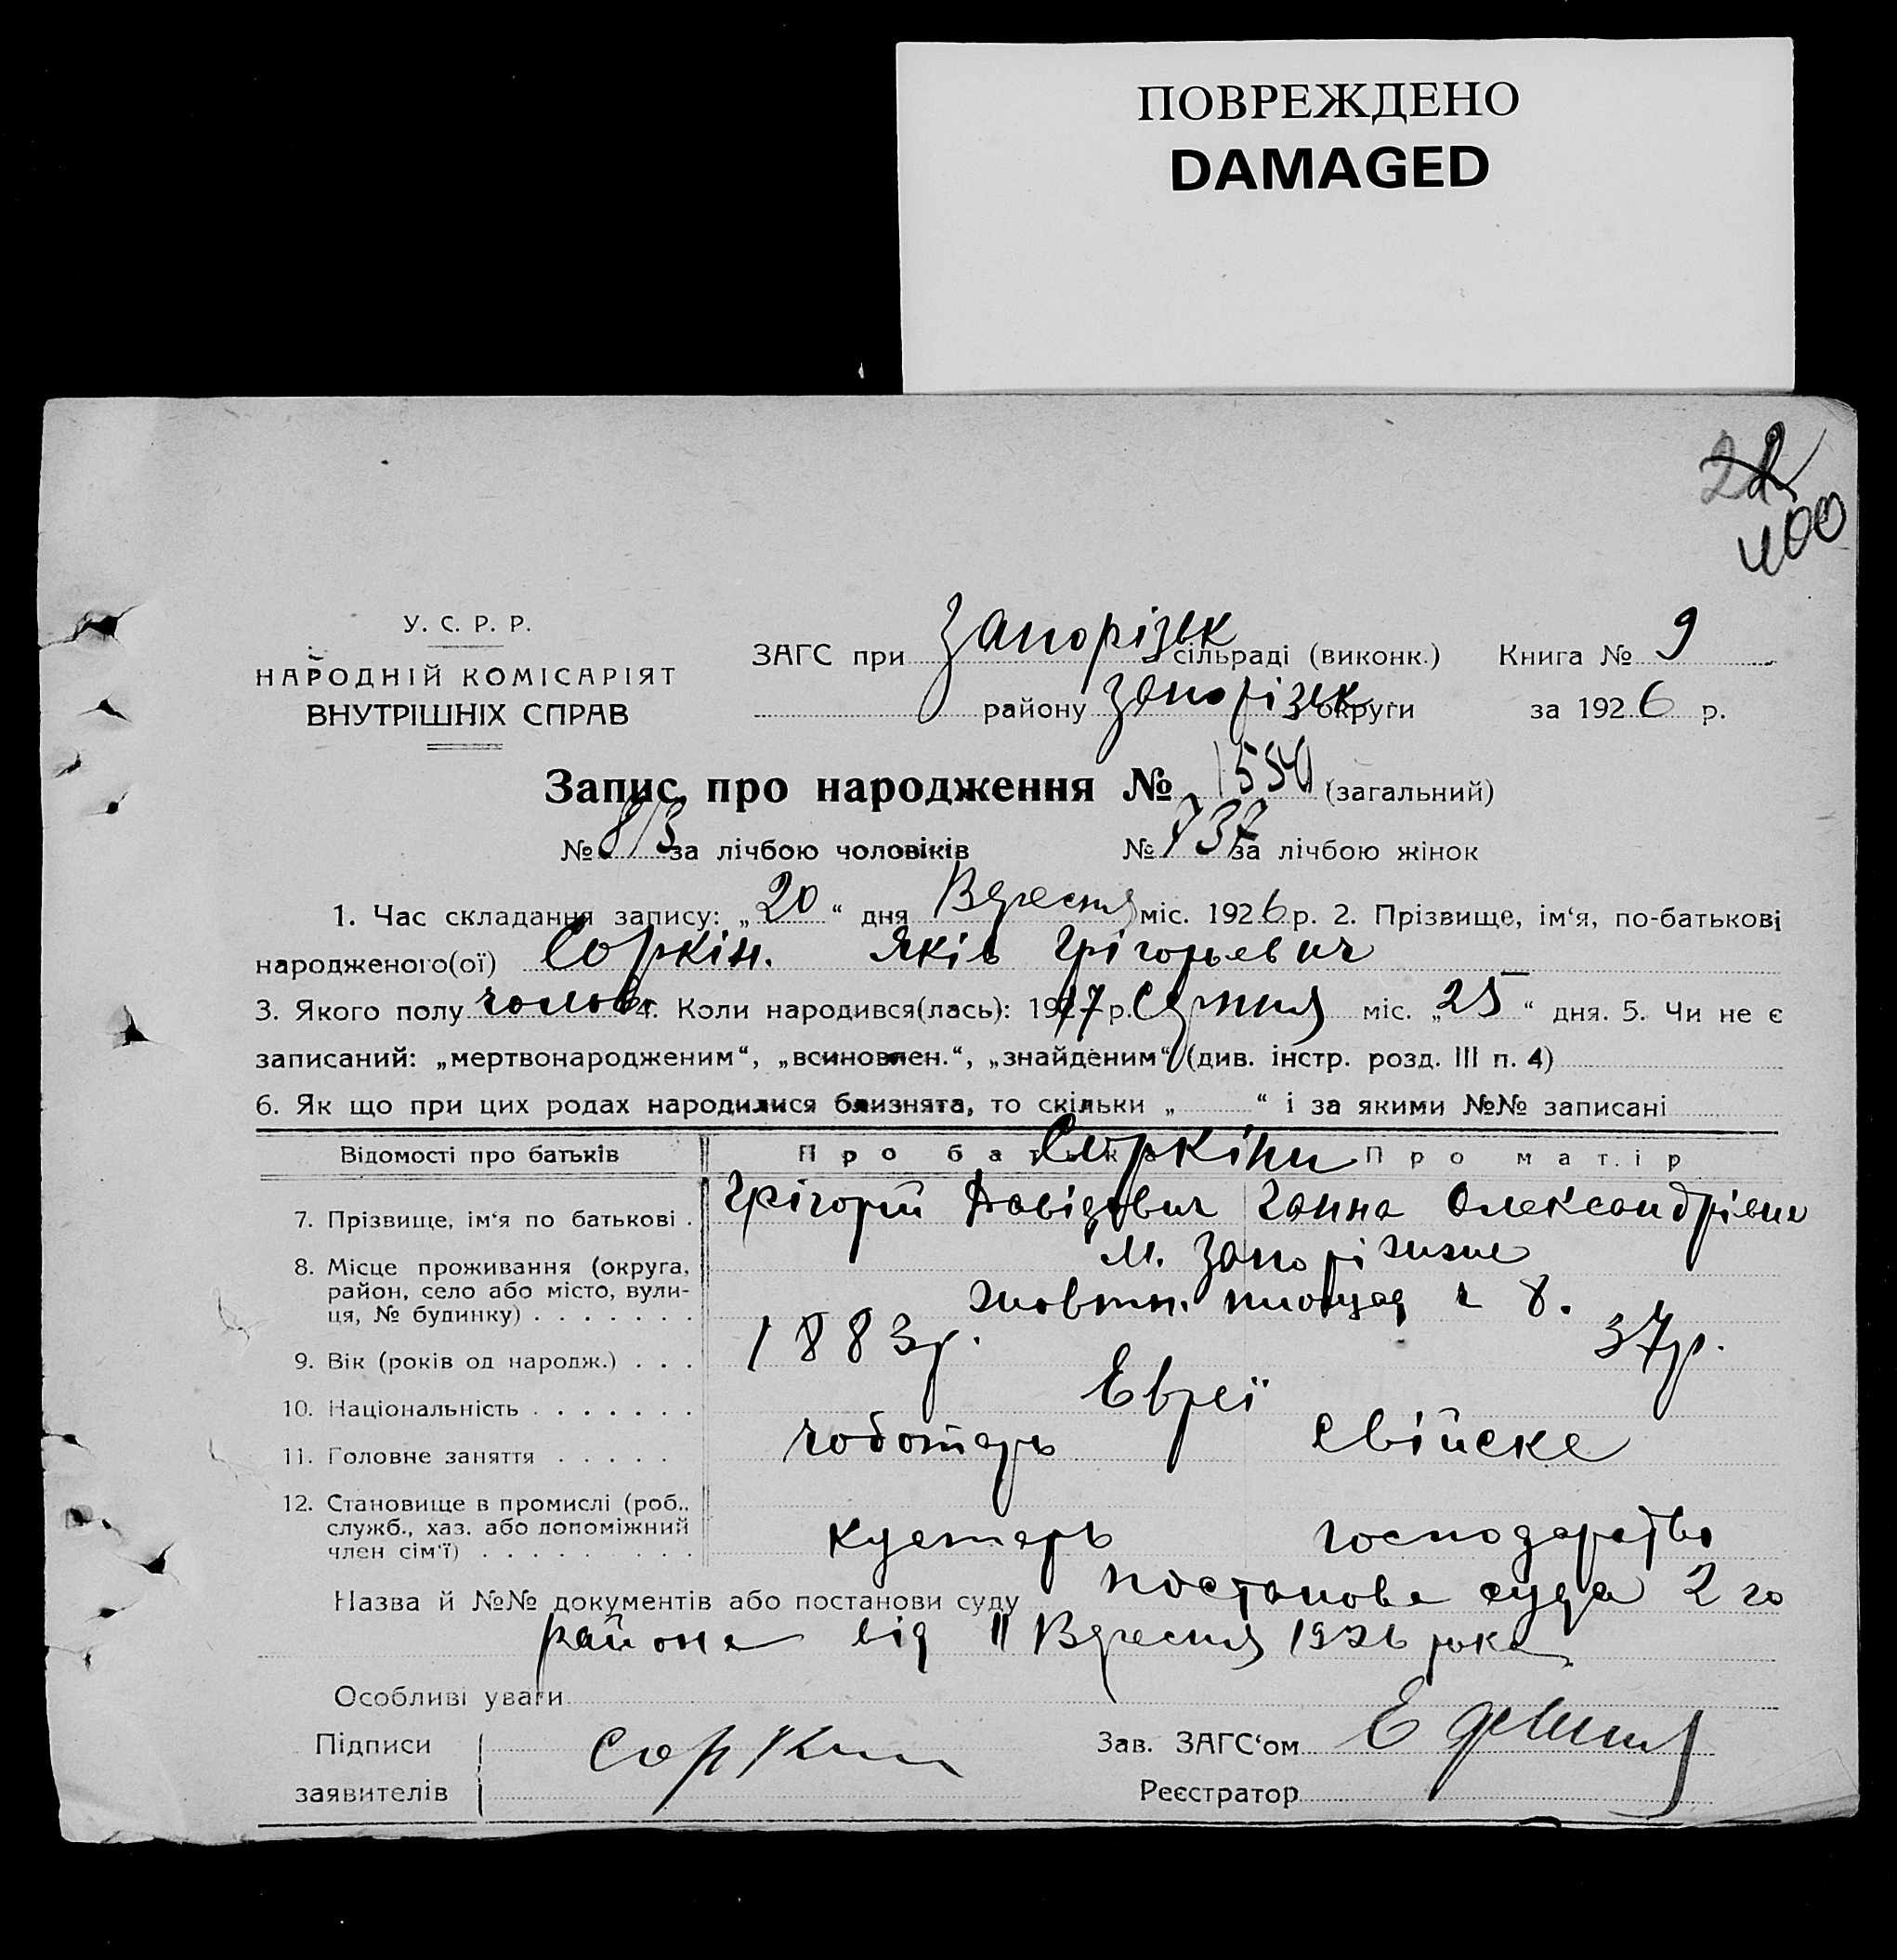 ПОВРЕЖДЕНО
DAMAGED
400
У. С. Р. Р.
НАРОДНІЙ КОМІСАРІЯТ
ВНУТРІШНІХ СПРАВ
ЗАГС при Запорізьк сільраді (виконк.) Книга № 9
району Запорізьк округи за 1926 р.
Запис про народження № 1550 (загальний)
№ 813 за лічбою чоловіків № 737 за лічбою жінок
1. Час складання запису: „20“ дня Вересня міс. 1926 р. 2. Прізвище, ім‘я, по-батькові
народженого(ої) Соркін. Яків Грігорьевич
3. Якого полу чолов 4. Коли народився(лась): 1917 р. Серпня міс. „25“ дня. 5. Чи не є
записаний: „мертвонародженим“, „всиновлен.“, „знайденим“ (див. інстр. розд. III п. 4)
6. Як що при цих родах народилися близнята, то скільки „ “ і за якими №№ записані
Відомості про батьків Про батька Соркіни Про матір
7. Прізвище, ім‘я по батькові . Грігорій Давідович Ганна Олександрівна
8. Місце проживання (округа, м. Запоріжжя
район, село або місто, вули-
ця, № будинку) . . . . . . . Жовтн. площад ч 8.
9. Вік (років од народж.) . . . 1883 р. 37 р.
10. Національність . . . . . . . Евреї
11. Головне заняття . . . . . чоботарь свійске
12. Становище в промислі (роб.,
служб., хаз. або допоміжний кустарь господарство
член сім‘ї) . . . . . . . . .
Назва й №№ документів або постанови суду постанова суда 2 го
района від 11 Вересня 1926 року
Особливі уваги
Підписи Соркин Зав. ЗАГС‘ом
заявителів Реєстратор